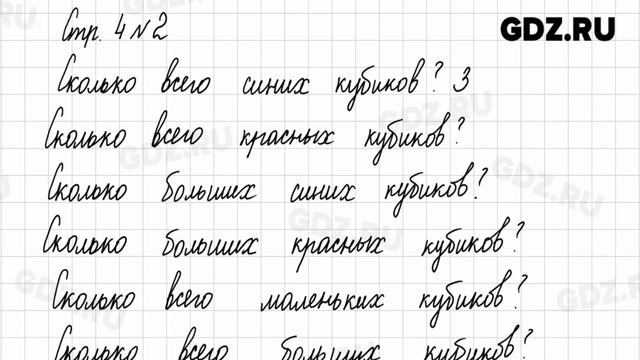 Стр. 4 №2
GDZ.RU
Сколько всего синих кубиков? 3
Сколько всего красных кубиков?
Сколько больших синих кубиков?
Сколько больших красных кубиков?
Сколько всего маленьких кубиков?
Сколько всего больших кубиков?